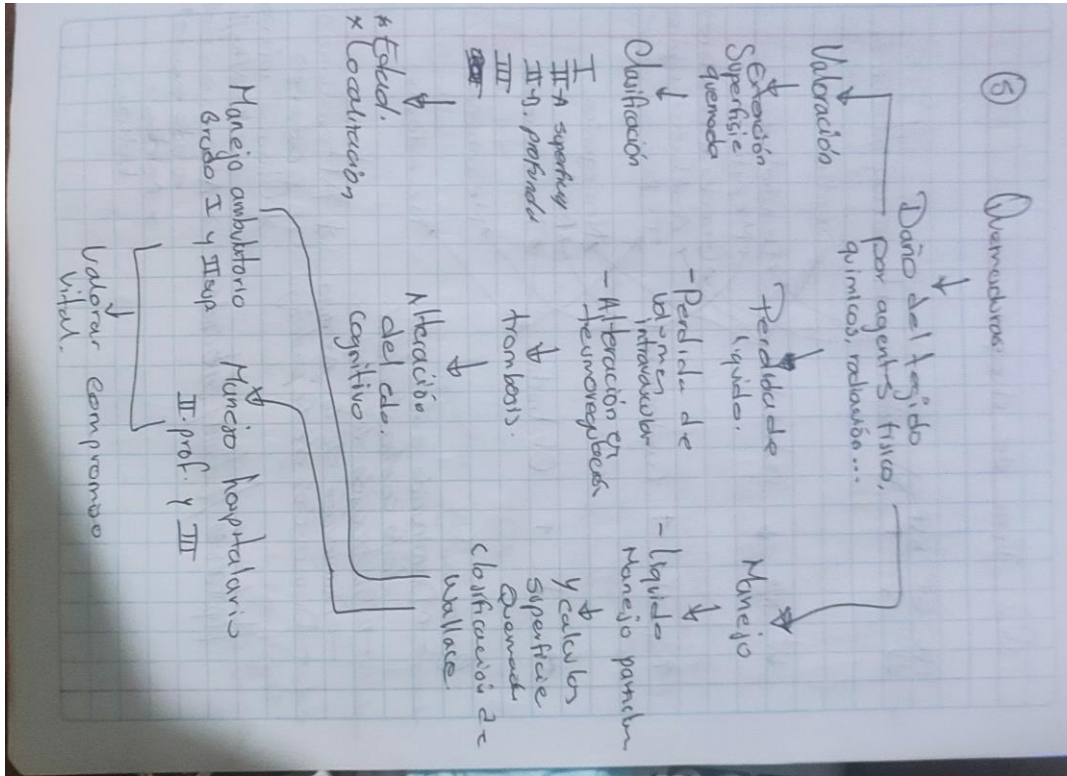 ⑤ Quemaduras
Daño del tejido
por agents fisico,
quimicos, radiación...
Valoración
Extención
Superfisie
quemada
Clasificación
I
II-A superficy
II-D. profunda
III
* Edad.
* Localización
Perdida de
liquido.
- Perdida de
volumen
intravascular
- Alteración en
termoregulación
trombosis.
Alteración
del edo.
cognitivo
Manejo
- Liquido
Manejo
y calculos
superficie
Quemada
Clasificación de
Wallace.
Manejo ambulatorio
Grado I y II sup
Manejo hospitalario
II. prof. y III
Valorar compromiso
vital.